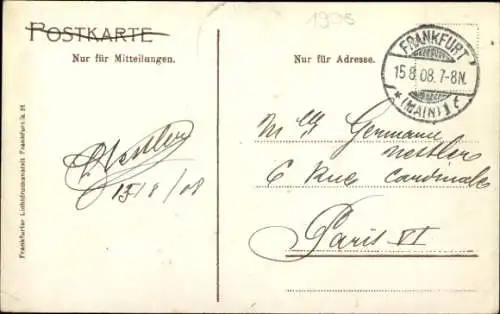 1995
POSTKARTE
Nur für Mitteilungen.
Nur für Adresse.
FRANKFURT
15.8.08.7-8N.
* (MAIN) 1 c
Nestler
15/8/08
M Germaine
Nestler
6 Rue Cardinale
Paris VI
Frankfurter Lichtdruckanstalt Frankfurt a. M